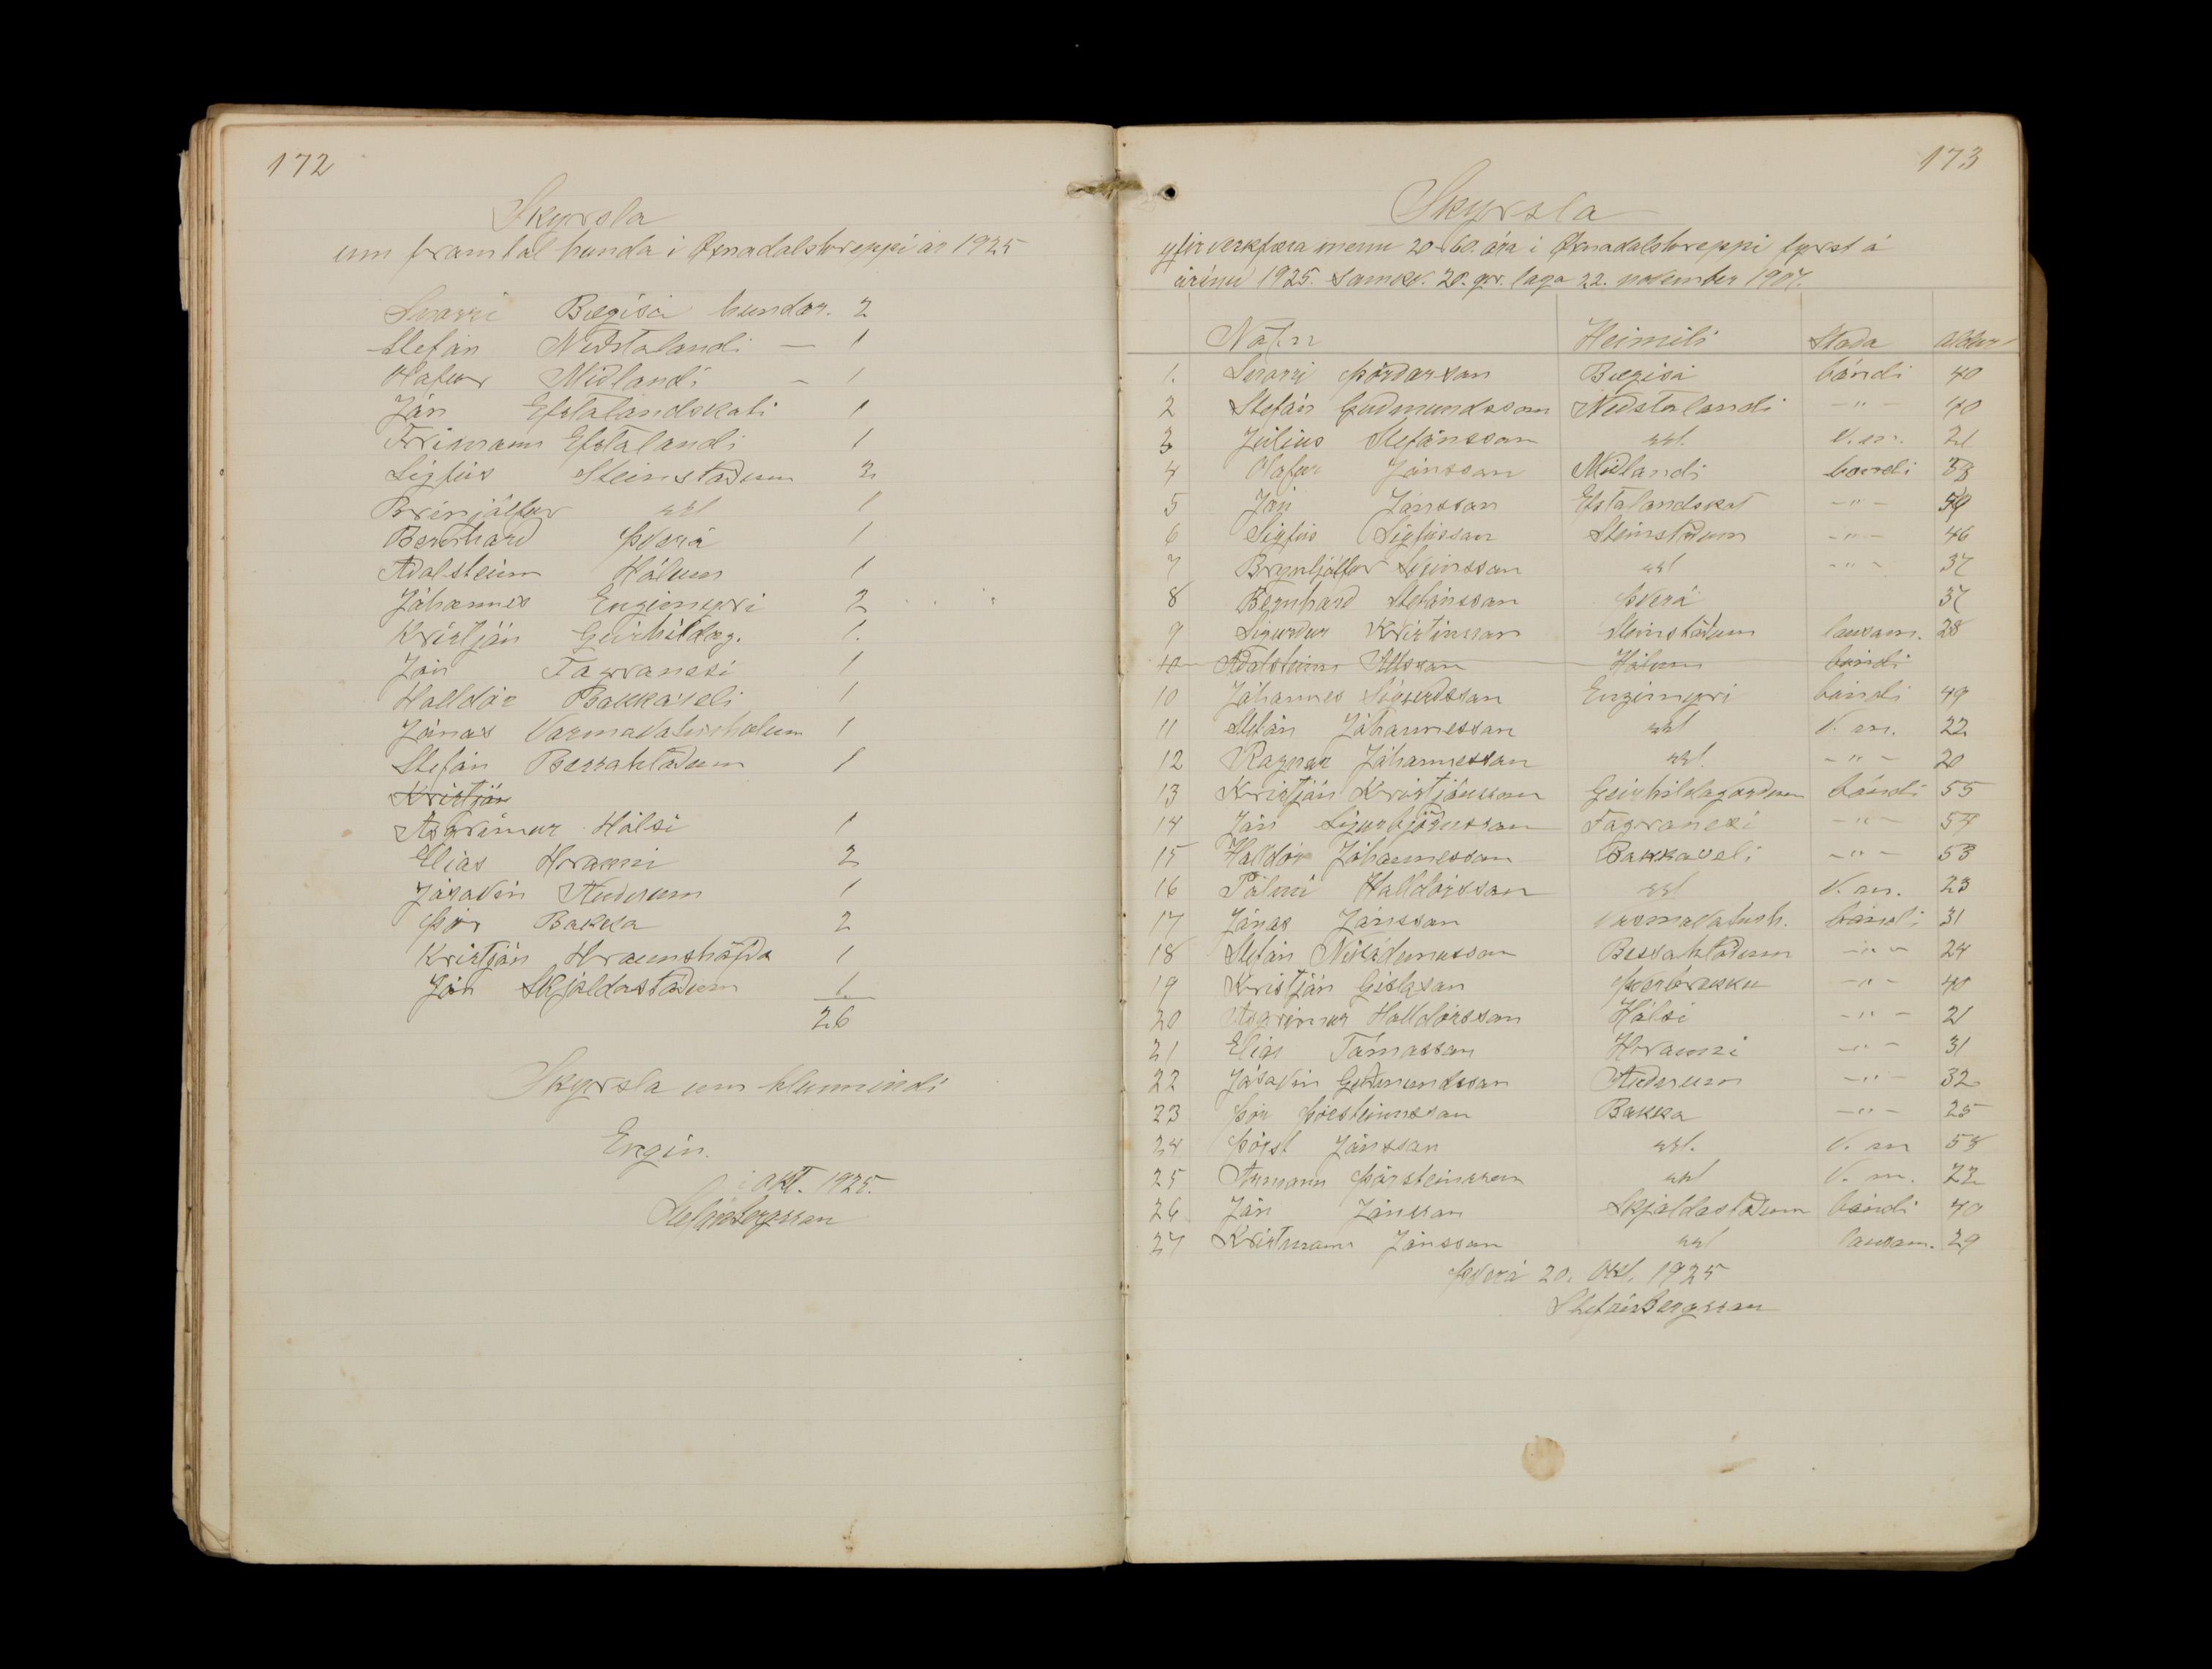 172
Skyrsla
um framtal hunda i Øxnadalshreppi ár 1925
Snorri Bægisá hundar. 2
Stefán Neðstalandi — 1
Olafur Miðlandi - 1
Jón Efstalandskoti 1
Frimann Efstalandi 1
Sigfús Steinstöðum 2
Brinjólfur ssl 1
Bernhard Þverá 1
Aðalsteinn Hólum 1
Jóhannes Engimyri 2
Kristján Geirhildag. 1.
Jón Fagranesi 1
Halldór Bakkaseli 1
Jónas Varmavatnshólum 1
Stefán Bessahlöðum 1
Kristján
Asgrimur Hálsi 1
Elias Hrauni 2
Jósavin Auðnum 1
Þór Bakka 2
Kristján Hraunshöfða 1
Jón Skjaldastöðum 1
26
Skyrsla um hlunnindi
Engin.
i okt. 1925.
Stefán Bergsson
173
Skyrsla
yfir verkfæra menn 20-60. ára i Øxnadalshreppi fyrst á
árinu 1925. Samkv. 20. gr. laga 22. november 1907.
Nöfn Heimili Staða aldur
1. Snorri Þórðarson Bægisá bóndi 40
2 Stefán Guðmundsson Neðstalandi -"- 40
3 Július Stefánsson ssl. v.m. 21
4 Olafur Jónsson Miðlandi bondi
5 Jón Jónsson Efstalandskot -"-
6 Sigfús Sigfússon Steinstöðum -"- 46
7 Brynhjólfur Sveinsson ssl -"- 37
8 Bernhard Stefánsson Þverá 37
9 Sigurður Kristinsson Steinstöðum lausam. 28
10 Aðalsteinn Hólum bóndi
10 Jóhannes Sigurðsson Engimyri bóndi 49
11 Stefán Jóhannesson ssl V. m. 22
12 Ragnar Jóhannesson ssl. -"- 20
13 Kristján Kristjánsson Geirhildagörðum bóndi 55
14 Jón Sigurbjörnsson Fagranesi -"- 54
15 Halldór Jóhannesson Bakkaseli -"- 53
16 Pálmi Halldórsson ssl V. m. 23
17 Jónas Jónsson Varmavatnsh. bóndi 31
18 Stefán Nikódemusson Bessahlöðum -"- 24
19 Kristján Gislason Þverbrekku -"- 40
20 Asgrimur Halldórsson Hálsi -"- 21
21 Elias Tómasson Hrauni -"- 31
22 Jósavin Guðmundsson Auðnum -"- 32
23 Þór Þorsteinsson Bakka -"- 25
24 Þorst Jónsson ssl. V. m 58
25 Armann Þorsteinsson ssl V. m. 22
26 Jón Jónsson Skjaldastöðum bóndi 40
27 Kristmann Jónsson ssl lausam. 29
Þverá 20. Okt. 1925
Stefán Bergsson